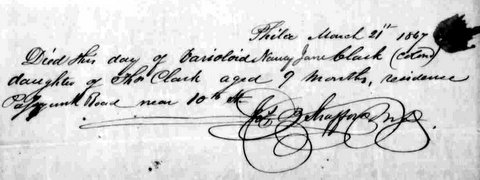 Phila March 21st 1867
Died this day of Varioloid Nancy Jane Clark (Colored)
daughter of Thos Clark aged 9 months, residence
Passyunk Road near 10th St
Jos. B Shaffer M.D.